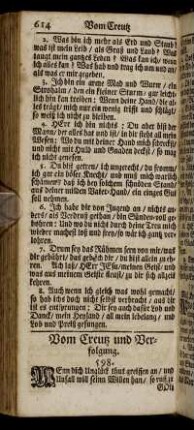 614 Vom Creutz
2. Was bin ich mehr als Erd und Staub/
was ist mein Leib / als Gras und Laub? Was
taugt mein gantzes Leben? Was kan ich/ wenn
ich alles kan? Was hab und trag ich um und an/
als was er mir gegeben.
3. Ich bin ein arme Mad und Wurm / ein
Strohalm / den ein kleiner Sturm / gar leicht-
lich hin kan treiben: Wenn deine Hand/ die al-
les trägt/ mich nur ein wenig trifft und schlägt/
so weiß ich nicht zu bleiben.
4. HErr ich bin nichts: Du aber bist der
Mann/ der alles hat und ist/ in dir steht all mein
Wesen: Wo du mit deiner Hand mich schreckst/
und nicht mit Huld und Gnaden deckst / so mag
ich nicht genesen.
5. Du bist getreu / ich ungerecht/ du fromm/
ich gar ein böser Knecht/ und muß mich warlich
schämen/ daß ich bey solchem schnöden Stand/
aus deiner milden Vater-Hand/ ein eintzigs Gut soll
nehmen.
6. Ich habe dir von Jugend an / nichts an-
ders/ als Verdruß gethan / bin Sünden-voll ge-
bohren: Und wo du nicht durch deine Treu mich
wieder machest loß und frey/so wär ich gantz ver-
lohren.
7. Drum sey das Rühmen fern von mir/ was
dir gebühret/ das gebe ich dir / du bist allein zu eh-
ren. Ach laß/ HErr JEsu/ meinen Geist/ und
was aus meinem Geiste fleust/ zu dir sich allzeit
kehren.
8. Auch wenn ich gleich was wohl gemacht/
so hab ichs doch nicht selbst verbracht/ aus dir
ist es entsprungen: Dir sey auch dafür Lob und
Danck/ mein Heyland/ all mein lebelang/ und
Lob und Preiß gesungen.
Vom Creutz und Ver-
folgung.
598.
WEnn dich Unglück thut greiffen an / und
Unfall will seinen Willen han/ so